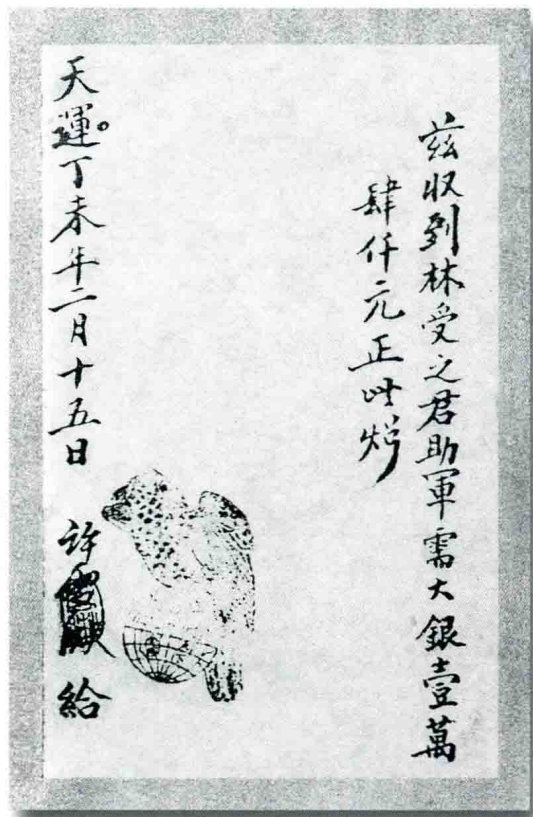 茲收到林受之君助軍需大銀壹萬
肆仟元正此炤
天運丁未年二月十五日 許雪湫 給